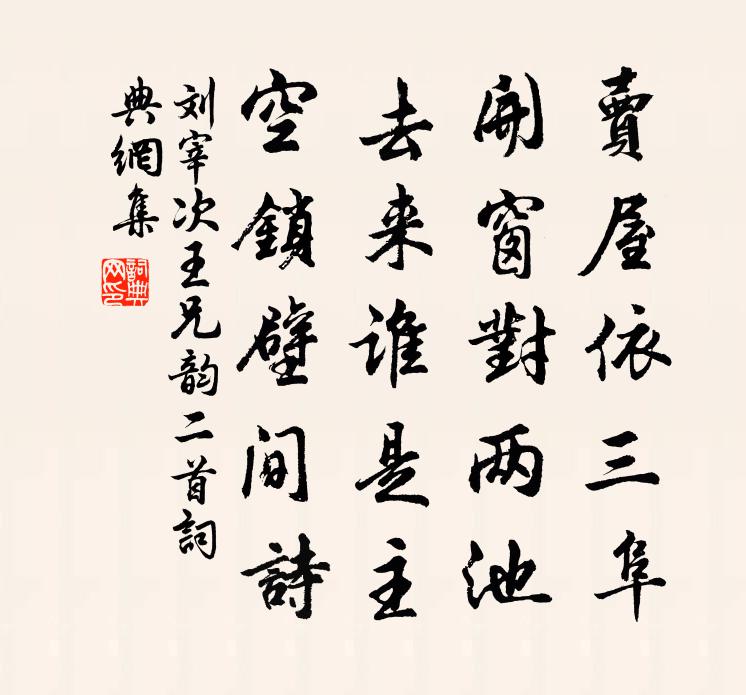 賣屋依三阜
開窗對两池
去来谁是主
空鎖壁間詩
刘宰次王兄韵二首詞
典網集
詞典网印